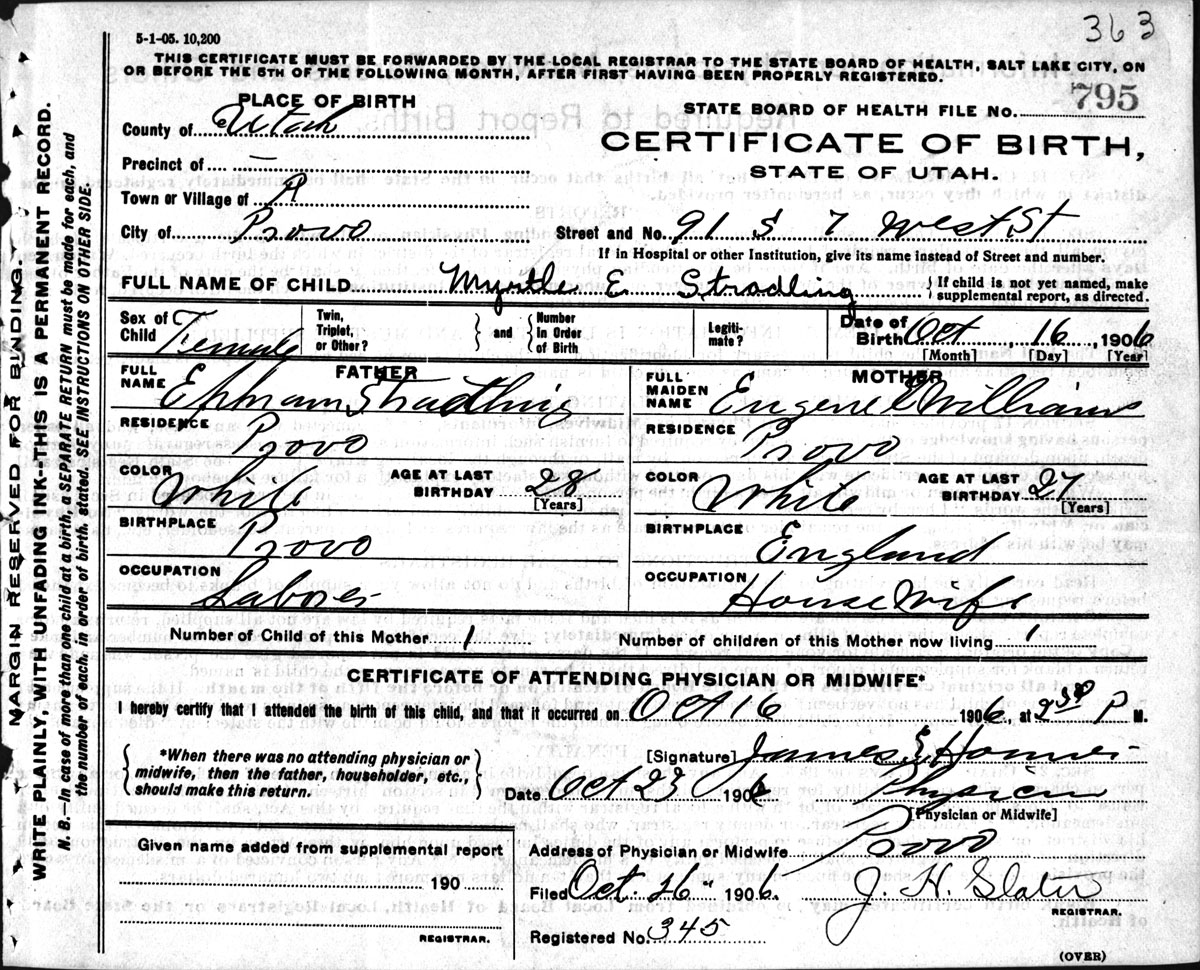 363
5-1-05. 10,200
THIS CERTIFICATE MUST BE FORWARDED BY THE LOCAL REGISTRAR TO THE STATE BOARD OF HEALTH, SALT LAKE CITY, ON
OR BEFORE THE 5TH OF THE FOLLOWING MONTH, AFTER FIRST HAVING BEEN PROPERLY REGISTERED.
PLACE OF BIRTH
STATE BOARD OF HEALTH FILE No. 795
County of Utah
CERTIFICATE OF BIRTH,
STATE OF UTAH.
Precinct of —
Town or Village of
City of Provo Street and No. 91 S 7 West St
If in Hospital or other Institution, give its name instead of Street and number.
FULL NAME OF CHILD Myrtle E. Stradling { If child is not yet named, make
supplemental report, as directed.
Sex of Child Female Twin, Triplet, or Other? } and { Number in Order of Birth Legiti-mate? Date of Birth Oct 16, 1906
[Month] [Day] [Year]
FATHER
FULL NAME Ephram Stradling
RESIDENCE Provo
COLOR White AGE AT LAST BIRTHDAY 28
[Years]
BIRTHPLACE Provo
OCCUPATION Laborer
MOTHER
FULL MAIDEN NAME Eugene Williams
RESIDENCE Provo
COLOR White AGE AT LAST BIRTHDAY 27
[Years]
BIRTHPLACE England
OCCUPATION House Wife
Number of Child of this Mother 1 Number of children of this Mother now living 1
CERTIFICATE OF ATTENDING PHYSICIAN OR MIDWIFE*
I hereby certify that I attended the birth of this child, and that it occurred on Oct 16 1906, at 2 P M.
{ *When there was no attending physician or
midwife, then the father, householder, etc.,
should make this return. }
[Signature] James E
Date Oct 23 1906 Physician
[Physician or Midwife]
Given name added from supplemental report
190
REGISTRAR.
Address of Physician or Midwife Provo
Filed Oct. 26" 1906. J. H. Slater
REGISTRAR.
Registered No. 345
(OVER)
MARGIN RESERVED FOR BINDING
WRITE PLAINLY, WITH UNFADING INK--THIS IS A PERMANENT RECORD.
N. B.—In case of more than one child at a birth, a SEPARATE RETURN must be made for each, and
the number of each, in order of birth, stated. SEE INSTRUCTIONS ON OTHER SIDE.